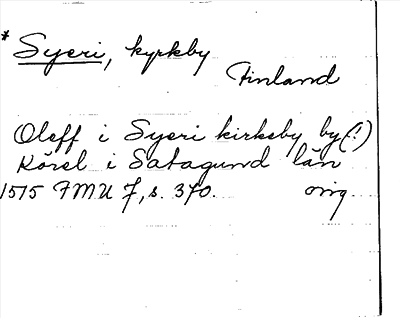 * Syeri, kyrkby
Finland
Oleff i Syeri kirkeby by (!)
Körel i Satagund län
1515 FMU 7, s. 370. orig.